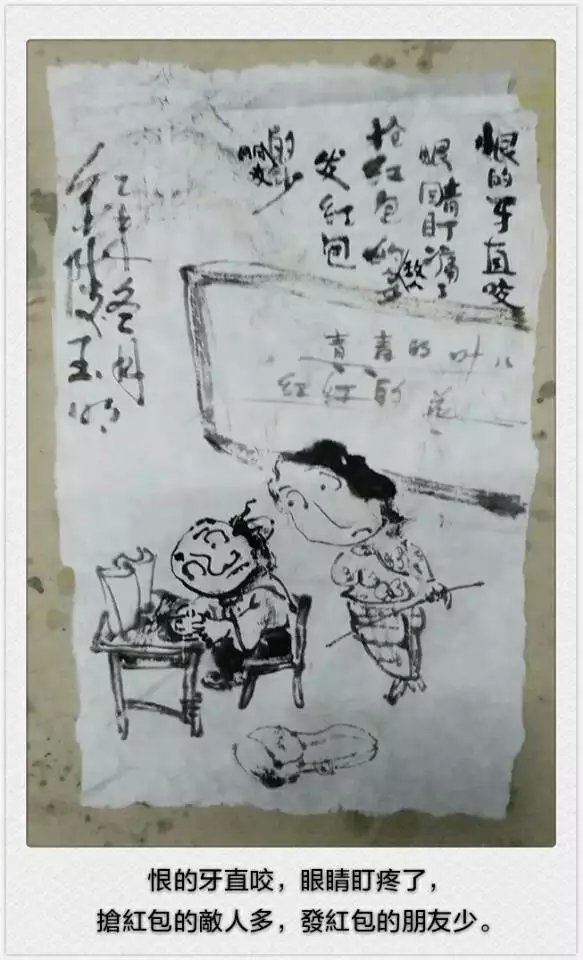 恨的牙直咬
眼睛盯痛了
抢红包的敌人多
发红包
朋友的少
乙未冬月
金陵
青青的叶儿
红红的花
恨的牙直咬，眼睛盯疼了，
搶紅包的敵人多，發紅包的朋友少。